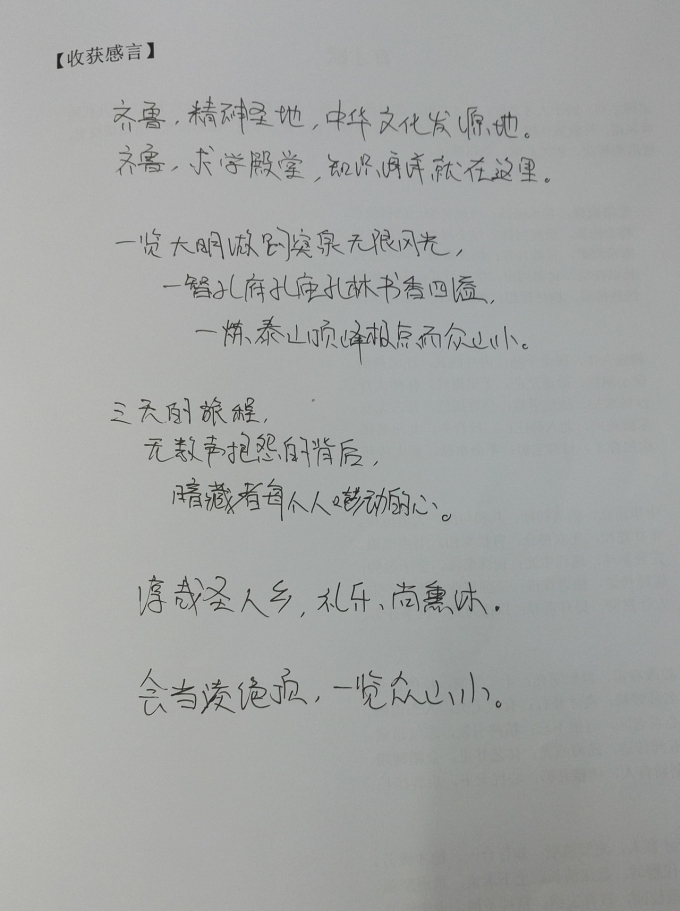 【收获感言】
齐鲁，精神圣地，中华文化发源地。
齐鲁，求学殿堂，知识海洋就在这里。
一览大明湖趵突泉无限风光，
一智孔府孔庙孔林书香四溢，
一炼泰山顶峰极点而众山小。
三天的旅程，
无数声抱怨的背后，
暗藏着每个人激动的心。
淳哉圣人乡，礼乐、尚熏沐.
会当凌绝顶，一览众山小。